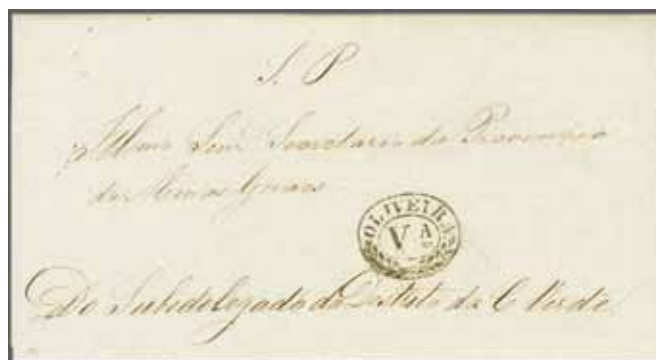 S. P
Illmo Snr Secretario da Provincia
de Minas Geraes
OLIVEIRA
VA
Do Subdelegado do Districto de C Verde